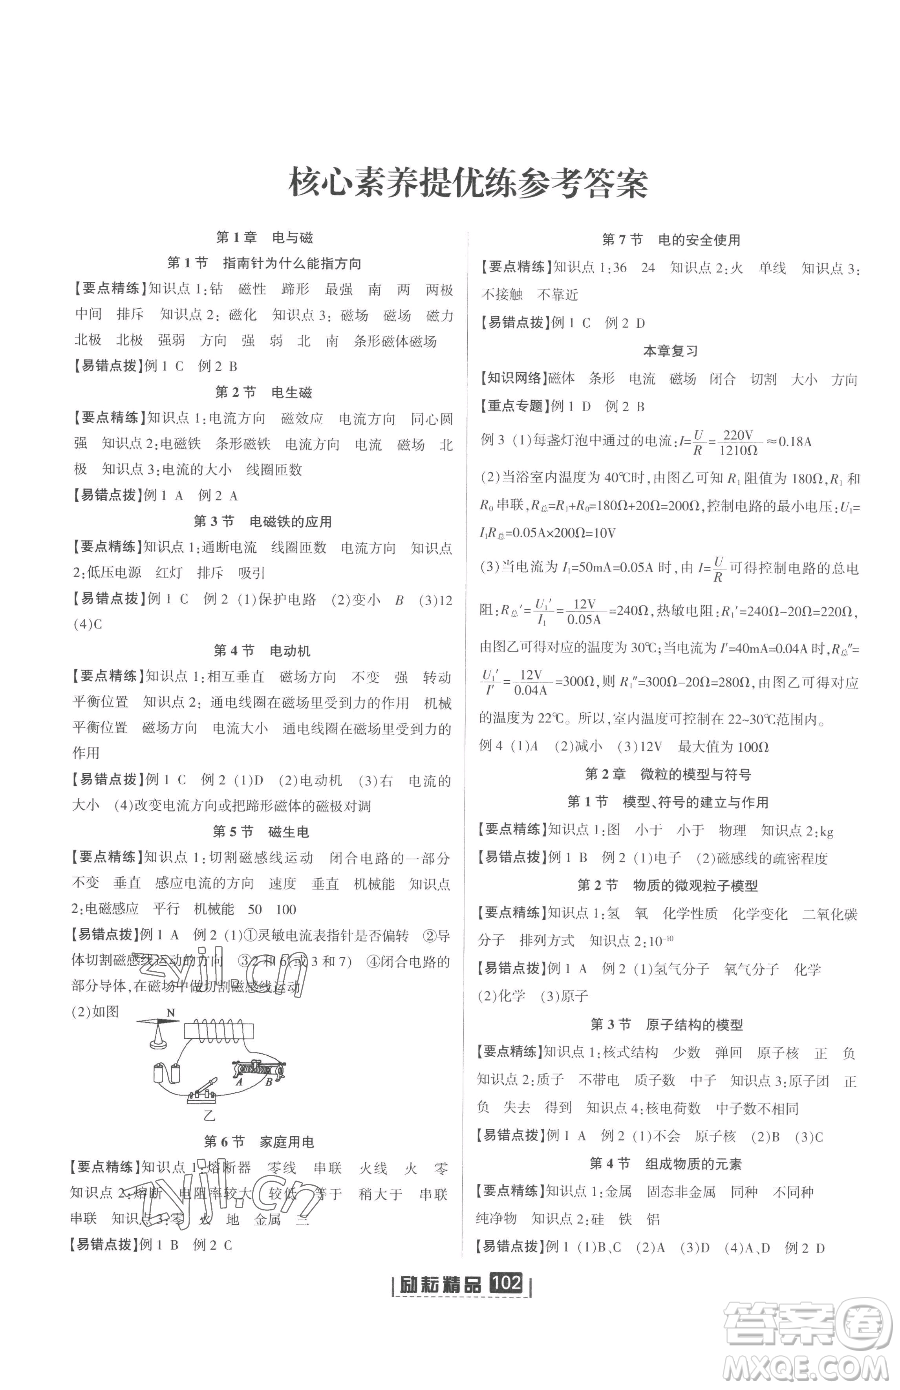 核心素养提优练参考答案
第1章 电与磁
第1节 指南针为什么能指方向
【要点精练】知识点1:钻 磁性 蹄形 最强 南 两 两极
中间 排斥 知识点2:磁化 知识点3:磁场 磁场 磁力
北极 北极 强弱 方向 强 弱 北 南 条形磁体磁场
【易错点拨】例1 C 例2 B
第2节 电生磁
【要点精练】知识点1:电流方向 磁效应 电流方向 同心圆
强 知识点2:电磁铁 条形磁铁 电流方向 电流 磁场 北
极 知识点3:电流的大小 线圈匝数
【易错点拨】例1 A 例2 A
第3节 电磁铁的应用
【要点精练】知识点1:通断电流 线圈匝数 电流方向 知识点
2:低压电源 红灯 排斥 吸引
【易错点拨】例1 C 例2 (1)保护电路 (2)变小 B (3)12
(4)C
第4节 电动机
【要点精练】知识点1:相互垂直 磁场方向 不变 强 转动
平衡位置 知识点2:通电线圈在磁场里受到力的作用 机械
平衡位置 磁场方向 电流方向 通电线圈在磁场里受到力的
作用
【易错点拨】例1 C 例2 (1)D (2)电动机 (3)右 电流的
大小 (4)改变电流方向或把蹄形磁体的磁极对调
第5节 磁生电
【要点精练】知识点1:切割磁感线运动 闭合电路的一部分
不变 垂直 感应电流的方向 速度 垂直 机械能 知识点
2:电磁感应 平行 机械能 50 100
【易错点拨】例1 A 例2 (1)①灵敏电流表指针是否偏转 ②导
体切割磁感线运动的方向 ③2和6(或3和7) ④闭合电路的
部分导体,在磁场中做切割磁感线运动
(2)如图
N
A B
乙
第6节 家庭用电
【要点精练】知识点1:熔断器 零线 串联 火线 火 零
知识点2:熔断 电阻率较大 较低 等于 稍大于 串联
串联 知识点3:零 火 地 金属 三
【易错点拨】例1 B 例2 C
第7节 电的安全使用
【要点精练】知识点1:36 24 知识点2:火 单线 知识点3:
不接触 不靠近
【易错点拨】例1 C 例2 D
本章复习
【知识网络】磁体 条形 电流 磁场 闭合 切割 大小 方向
【重点专题】例1 D 例2 B
例3 (1)每盏灯泡中通过的电流:I=U/R=220V/1210Ω≈0.18A
(2)当浴室内温度为40℃时,由图乙可知R1阻值为180Ω,R1和
R0串联,R总=R1+R0=180Ω+20Ω=200Ω,控制电路的最小电压:U1=
I1R总=0.05A×200Ω=10V
(3)当电流为I1=50mA=0.05A时,由I=U/R可得控制电路的总电
阻:R总′=U1′/I1=12V/0.05A=240Ω,热敏电阻:R1′=240Ω-20Ω=220Ω,
由图乙可得对应的温度为30℃;当电流为I′=40mA=0.04A时,R总″=
U1′/I′=12V/0.04A=300Ω,则R1″=300Ω-20Ω=280Ω,由图乙可得对应
的温度为22℃。所以,室内温度可控制在22~30℃范围内。
例4 (1)A (2)减小 (3)12V 最大值为100Ω
第2章 微粒的模型与符号
第1节 模型、符号的建立与作用
【要点精练】知识点1:图 小于 小于 物理 知识点2:kg
【易错点拨】例1 B 例2 (1)电子 (2)磁感线的疏密程度
第2节 物质的微观粒子模型
【要点精练】知识点1:氢 氧 化学性质 化学变化 二氧化碳
分子 排列方式 知识点2:10⁻¹⁰
【易错点拨】例1 A 例2 (1)氢气分子 氧气分子 化学
(2)化学 (3)原子
第3节 原子结构的模型
【要点精练】知识点1:核式结构 少数 弹回 原子核 正 负
知识点2:质子 不带电 质子数 中子 知识点3:原子团 正
负 失去 得到 知识点4:核电荷数 中子数不相同
【易错点拨】例1 A 例2 (1)不会 原子核 (2)B (3)C
第4节 组成物质的元素
【要点精练】知识点1:金属 固态非金属 同种 不同种
纯净物 知识点2:硅 铁 铝
【易错点拨】例1 (1)B、C (2)A、D (3)A、C 例2 D
励耘精品 102
zyjl.cn
zyjl.cn
答案圈
MXQE.COM